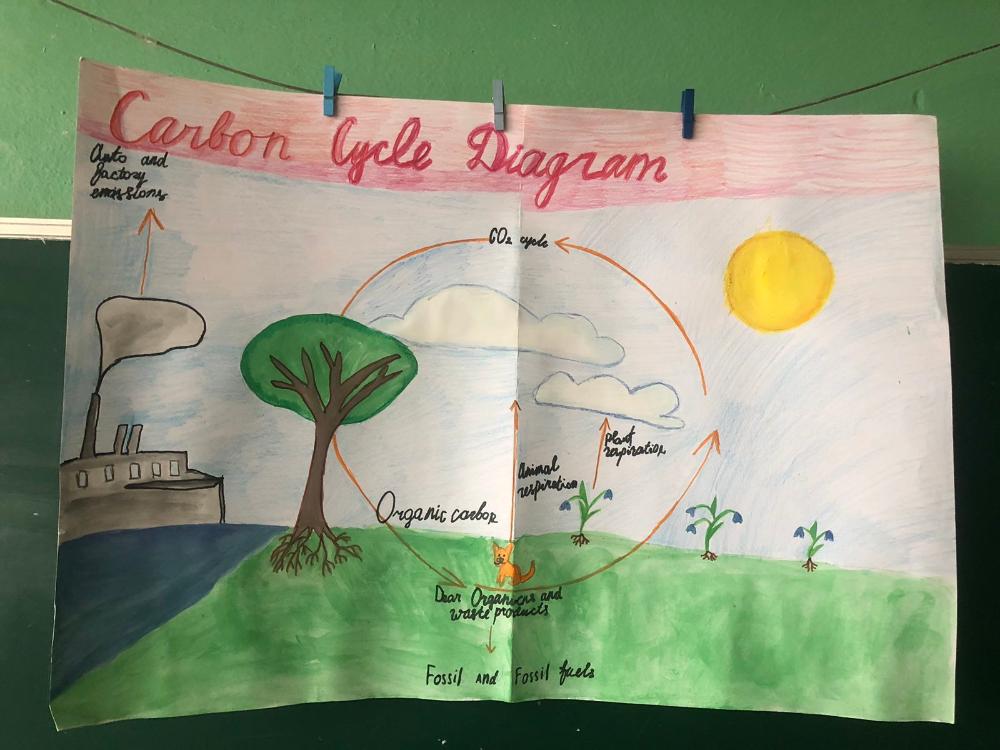 Carbon Cycle Diagram
Auto and
factory
emissions
CO₂ cycle
Plant
respiration
Animal
respiration
Organic carbon
Dear Organicns and
waste products
Fossil and Fossil fuels